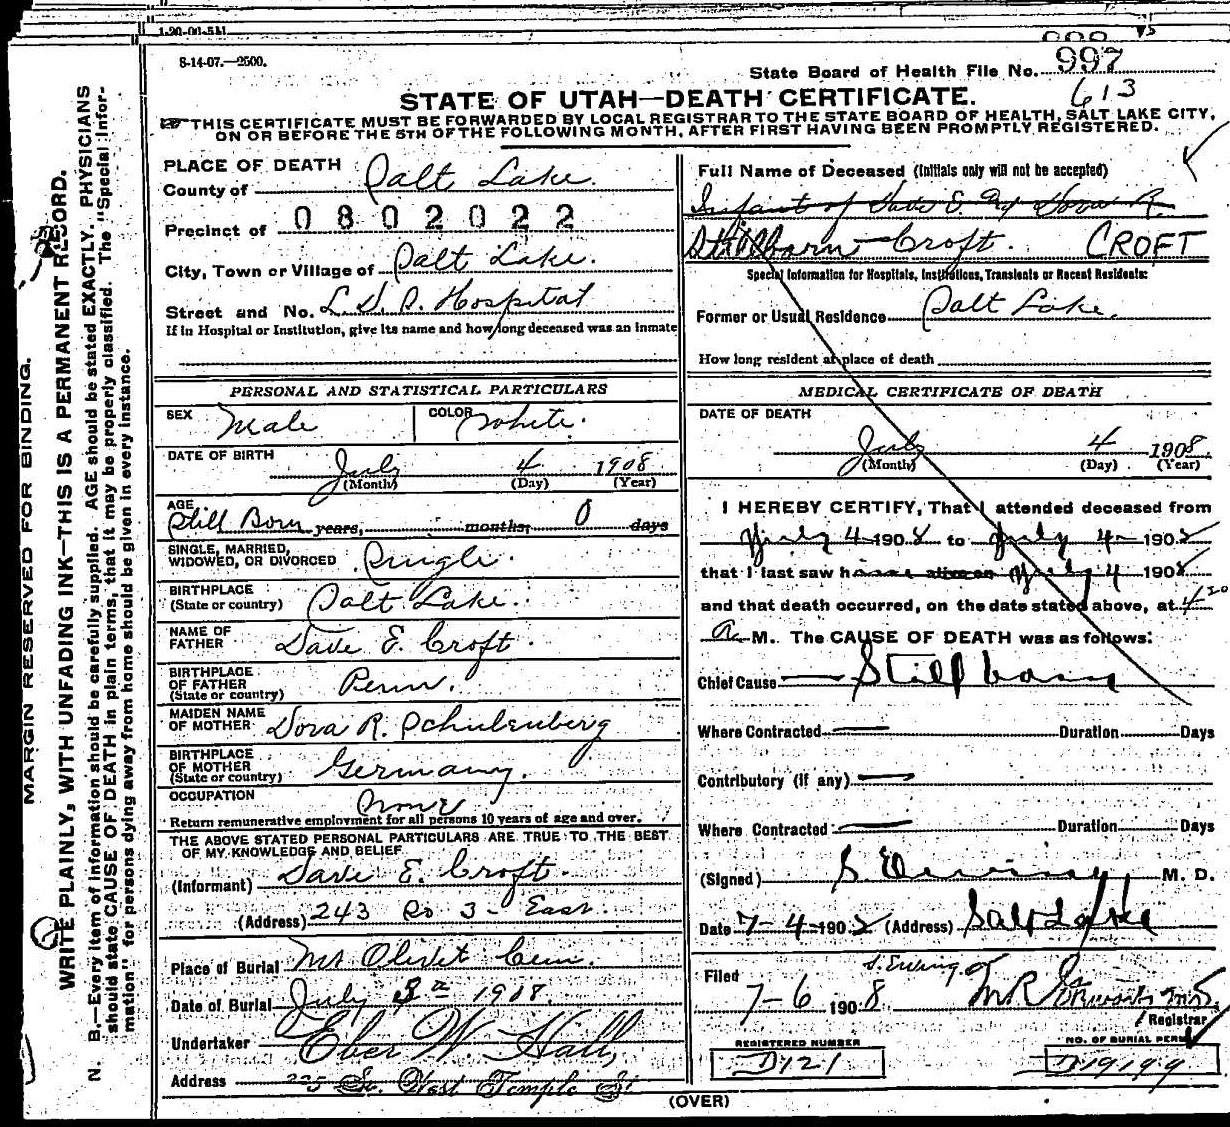 1-20-06-5M
8-14-07.—2500.
State Board of Health File No. 997
613
STATE OF UTAH—DEATH CERTIFICATE.
THIS CERTIFICATE MUST BE FORWARDED BY LOCAL REGISTRAR TO THE STATE BOARD OF HEALTH, SALT LAKE CITY,
ON OR BEFORE THE 5TH OF THE FOLLOWING MONTH, AFTER FIRST HAVING BEEN PROMPTLY REGISTERED.
MARGIN RESERVED FOR BINDING.
WRITE PLAINLY, WITH UNFADING INK—THIS IS A PERMANENT RECORD.
N. B.—Every item of information should be carefully supplied. AGE should be stated EXACTLY. PHYSICIANS
should state CAUSE OF DEATH in plain terms, that it may be properly classified. The "Special Infor-
mation" for persons dying away from home should be given in every instance.
PLACE OF DEATH
County of Salt Lake.
Precinct of 0802022
City, Town or Village of Salt Lake.
Street and No. L. D. S. Hospital
If in Hospital or Institution, give its name and how long deceased was an inmate
PERSONAL AND STATISTICAL PARTICULARS
SEX Male COLOR White.
DATE OF BIRTH July 4 1908
(Month) (Day) (Year)
AGE Still Born years, months, 0 days
SINGLE, MARRIED, WIDOWED, OR DIVORCED Single.
BIRTHPLACE (State or country) Salt Lake.
NAME OF FATHER Dave E. Croft.
BIRTHPLACE OF FATHER (State or country) Penn.
MAIDEN NAME OF MOTHER Dora R. Schulenberg
BIRTHPLACE OF MOTHER (State or country) Germany.
OCCUPATION None
Return remunerative employment for all persons 10 years of age and over.
THE ABOVE STATED PERSONAL PARTICULARS ARE TRUE TO THE BEST
OF MY KNOWLEDGE AND BELIEF
(Informant) Dave E. Croft.
(Address) 243 So 3- East.
Place of Burial Mt Olivet Cem.
Date of Burial July 1908.
Undertaker Eber W. Hall,
Address So. West Temple St
Full Name of Deceased (Initials only will not be accepted)
Infant of Dave E. Dora R.
Stillborn Croft. CROFT
Special Information for Hospitals, Institutions, Transients or Recent Residents:
Former or Usual Residence Salt Lake.
How long resident at place of death
MEDICAL CERTIFICATE OF DEATH
DATE OF DEATH
July 4 1908
(Month) (Day) (Year)
I HEREBY CERTIFY, That I attended deceased from
July 4 1908 to July 4 1908
that I last saw h alive on July 4 1908
and that death occurred, on the date stated above, at 4 20
A. M. The CAUSE OF DEATH was as follows:
Chief Cause Stillborn
Where Contracted Duration Days
Contributory (if any)
Where Contracted Duration Days
(Signed) S Ewing M. D.
Date 7-4-1908 (Address) Salt Lake
S. Ewing
Filed
7-6 1908
Registrar
REGISTERED NUMBER D121
NO. OF BURIAL PERMIT
(OVER)